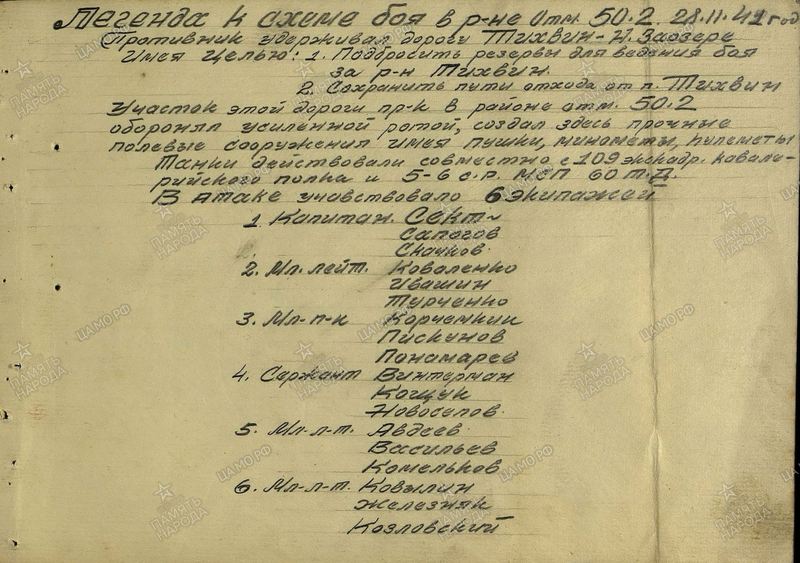 Легенда к схеме боя в р-не Отм. 50.2. 28.11.41 год
Противник удерживал дорогу Тихвин-Н. Заозере
Имея целью: 1. Подбросить резервы для ведения боя
за р-н Тихвин.
2. Сохранить пути отхода от п. Тихвин
Участок этой дороги пр-к в районе отм. 50.2
оборонял усиленной ротой, создал здесь прочные
полевые сооружения имея пушки, минометы, пулеметы
Танки действовали совместно с 109 эскадр. кавале-
рийского полка и 5-6 с.р. МСП 60 т.д.
В атаке учавствовало 6 экипажей
1. Капитан. Сект
Сапогов
Скачков.
2. Мл. лейт. Коваленко
Ивашин
Турченко
3. Мл-п-к Корчемкин
Пискунов
Пономарев
4. Сержант Винтерман
Кощук
Новоселов.
5. Мл-л-т. Авдеев.
Васильев
Комельков
6. Мл-л-т. Ковылин
Железняк
Козловский
ПАМЯТЬ НАРОДА
ЦАМО.РФ